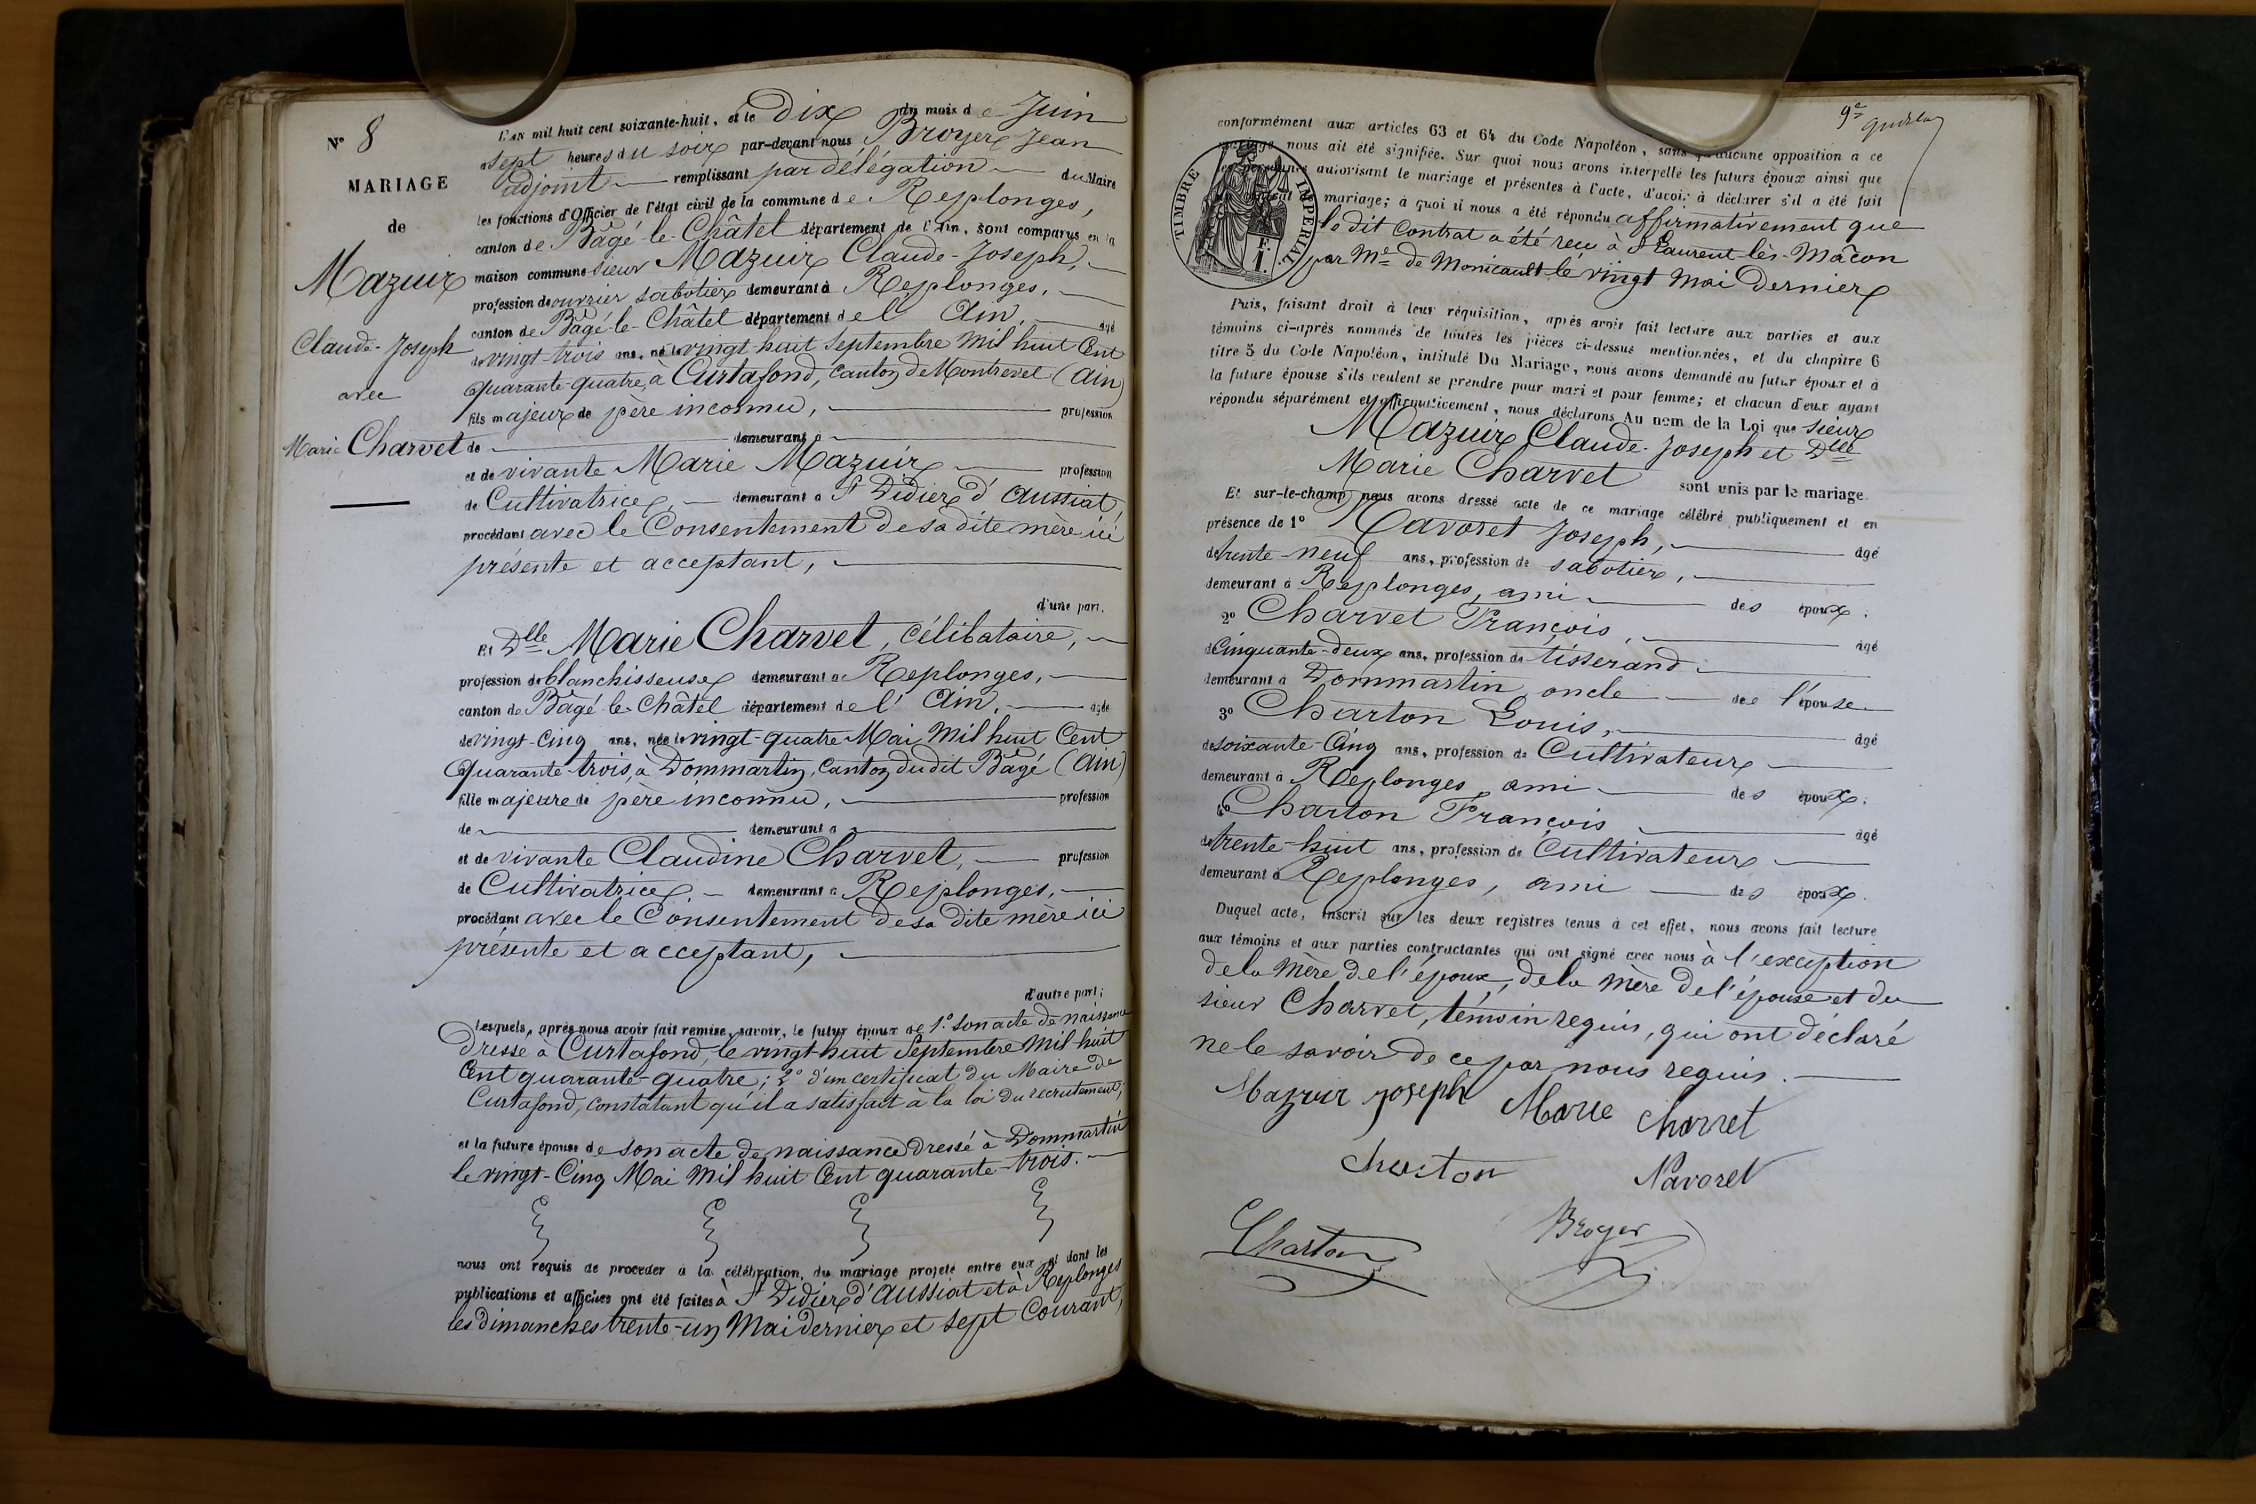 N° 8
MARIAGE
de
Mazuir
Claude-Joseph
avec
Marie Charvet
L'an mil huit cent soixante-huit, et le Dix du mois de Juin
a sept heures du soir par-devant nous Broyer Jean
adjoint remplissant par délégation du Maire
les fonctions d'Officier de l'état civil de la commune de Replonges,
canton de Bâgé-le-Châtel département de l'Ain, sont comparus en la
maison commune sieur Mazuir Claude-Joseph,
profession de ouvrier sabotier demeurant à Replonges,
canton de Bâgé-le-Châtel département de l'Ain, agé
de vingt trois ans, né le vingt-huit Septembre Mil huit Cent
Quarante-quatre, à Curtafond, canton de Montrevel (Ain)
fils majeur de père inconnu, profession
de demeurant a
et de vivante Marie Mazuir profession
de Cultivatrice, demeurant a St Didier d'Aussiat,
procédant avec le Consentement de sa dite mère ici
présente et acceptant,
d'une part.
Et Dlle Marie Charvet, célibataire,
profession de blanchisseuse demeurant a Replonges,
canton de Bâgé-le-Châtel département de l'Ain, agée
de vingt-Cinq ans, née le vingt-quatre Mai Mil huit Cent
Quarante-trois, à Dommartin, Canton dudit Bâgé (Ain)
fille majeure de père inconnu, profession
de demeurant a
et de vivante Claudine Charvet, profession
de Cultivatrice, demeurant a Replonges,
procédant avec le Consentement de sa dite mère ici
présente et acceptant,
d'autre part;
Lesquels, après nous avoir fait remise, savoir, le futur époux de 1° son acte de naissance
Dressé à Curtafond, le vingt-huit Septembre Mil huit
Cent quarante-quatre; 2° d'un certificat du Maire de
Curtafond, constatant qu'il a satisfait à la loi du recrutement;
et la future épouse de son acte de naissance Dressé à Dommartin
le vingt-Cinq Mai Mil huit Cent quarante-trois.
nous ont requis de proceder a la célébration du mariage projeté entre eux et dont les
publications et affiches ont été faites à St Didier d'Aussiat et à Replonges
les dimanches trente-un Mai dernier et sept Courant,
9e
conformément aux articles 63 et 64 du Code Napoléon, sans qu'aucune opposition a ce
mariage nous ait été signifiée. Sur quoi nous avons interpellé les futurs époux ainsi que
les personnes autorisant le mariage et présentes à l'acte, d'avoir à déclarer s'il a été fait
contrat de mariage; à quoi il nous a été répondu affirmativement que
TIMBRE IMPERIAL
F.
1.
le dit Contrat a été reçu à St Laurent-lès-Mâcon
par Me de Monicault le vingt Mai Dernier
Puis, faisant droit à leur réquisition, après avoir fait lecture aux parties et aux
témoins ci-après nommés de toutes les pièces ci-dessus mentionnées, et du chapitre 6
titre 5 du Code Napoléon, intitulé Du Mariage, nous avons demandé au futur époux et à
la future épouse s'ils veulent se prendre pour mari et pour femme; et chacun d'eux ayant
répondu séparément et affirmativement, nous déclarons Au nom de la Loi que sieur
Mazuir Claude-Joseph et Dlle
Marie Charvet sont unis par le mariage.
Et sur-le-champ nous avons dressé acte de ce mariage célébré publiquement et en
présence de 1° Navoret Joseph, agé
de trente-neuf ans, profession de sabotier,
demeurant à Replonges, ami des époux.
2° Charvet François, agé
de Cinquante-deux ans, profession de tisserand
demeurant à Dommartin, oncle de l'épouse
3° Charton Louis, agé
de soixante-Cinq ans, profession de Cultivateur
demeurant à Replonges, ami des époux.
4° Charton François agé
de trente-huit ans, profession de Cultivateur
demeurant à Replonges, ami des époux.
Duquel acte, inscrit sur les deux registres tenus à cet effet, nous avons fait lecture
aux témoins et aux parties contractantes qui ont signé avec nous à l'exception
de la Mère de l'époux, de la Mère de l'épouse et du
sieur Charvet, témoin requis, qui ont déclaré
ne le savoir de ce par nous requis.
Mazuir joseph Marie Charvet
Charton Navoret
Charton Broyer